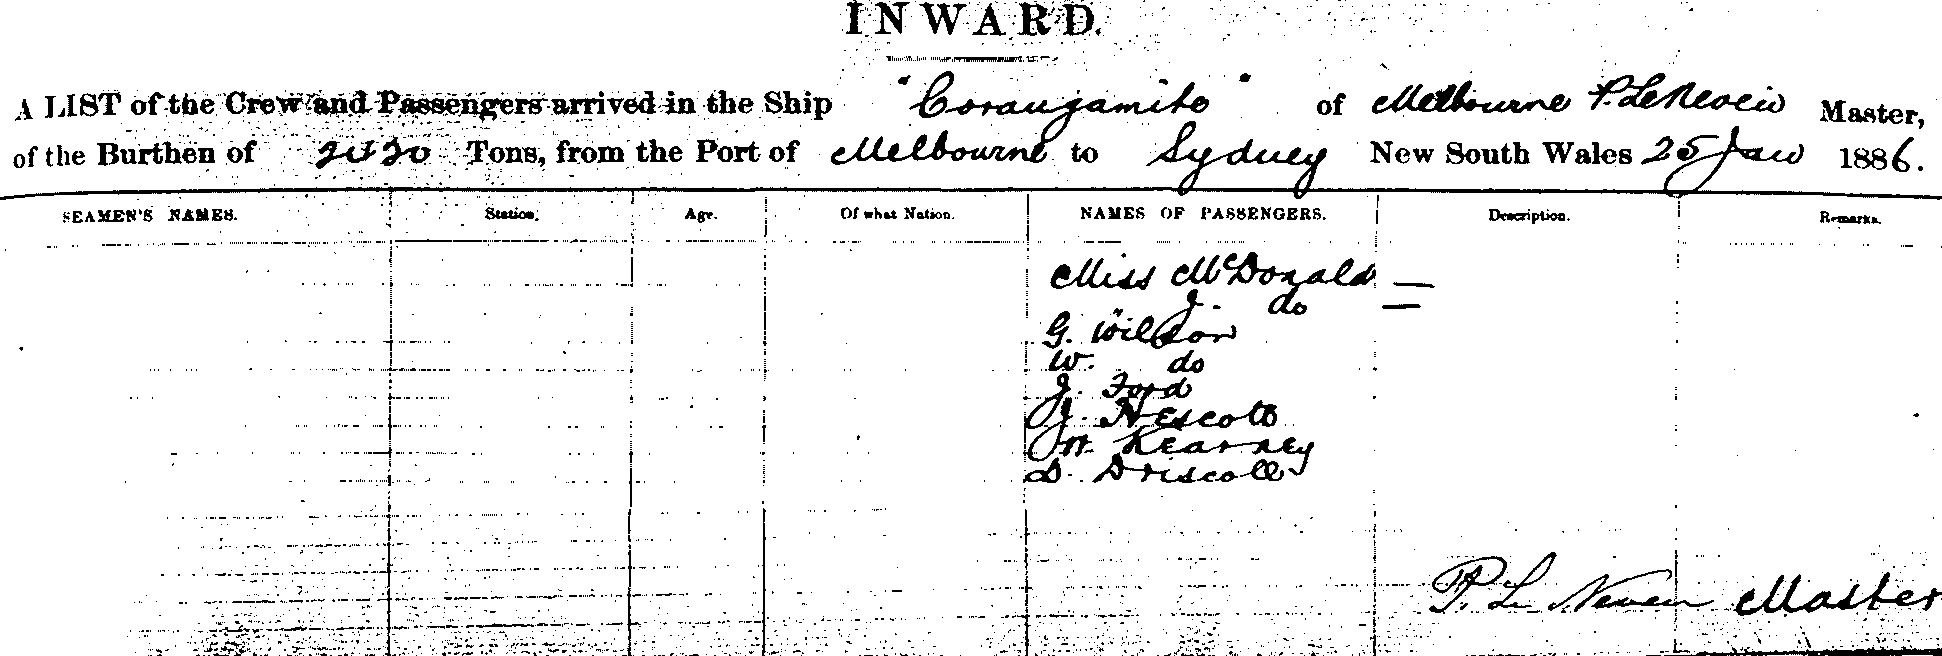 INWARD.
A LIST of the Crew and Passengers arrived in the Ship "Corangamite" of Melbourne P. Le Neveu Master,
of the Burthen of Tons, from the Port of Melbourne to Sydney New South Wales 25 Jan 1886.
SEAMEN'S NAMES. Station. Age. Of what Nation. NAMES OF PASSENGERS. Description. Remarks.
Miss McDonald —
J. do —
G. Wilson
W. do
J. Ford
J. Hescott
Kearney
D. Driscoll
P. Le Neveu Master